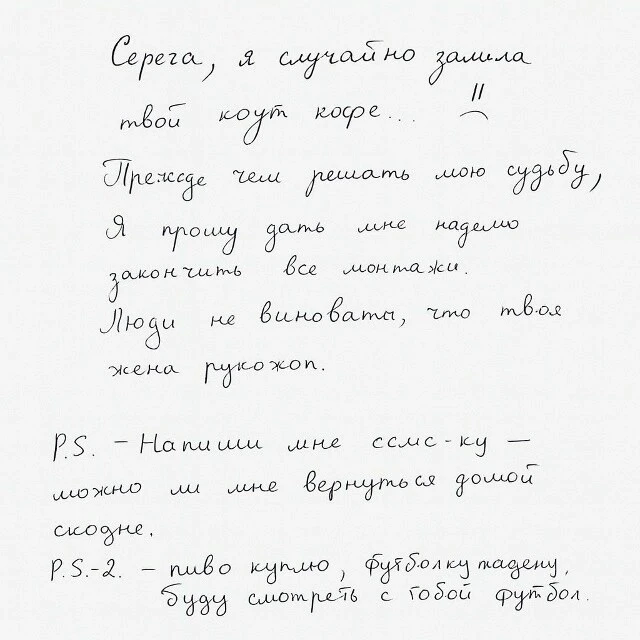 Серега, я случайно залила
твой коут кофе...
Прежде чем решать мою судьбу,
Я прошу дать мне наделю
закончить все монтажи.
Люди не виноваты, что твоя
жена рукожоп.
P.S. – Напиши мне ссмс-ку –
можно ли мне вернуться домой
скодне.
P.S.-2. – пиво куплю, футболку надену,
буду смотреть с тобой футбол.